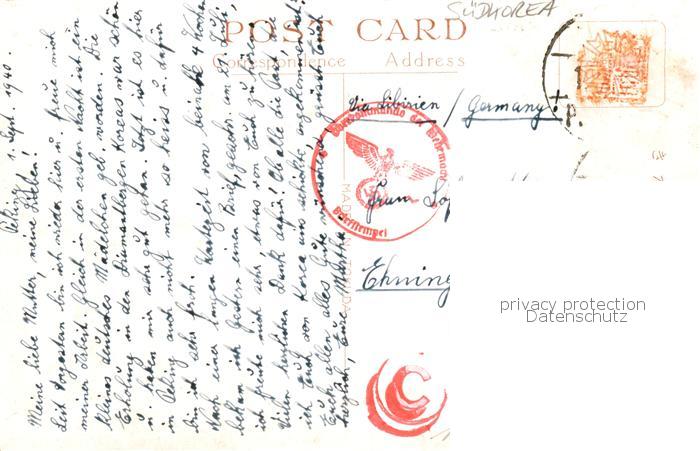 POST CARD
SÜDKOREA
Correspondence Address
Peking, 1. Sept. 1940.
Meine liebe Mutter, meine Lieben!
Seit vorgestern bin ich wieder hier u. freue mich
meiner Arbeit. Gleich in der ersten Nacht ist ein
kleines deutsches Mädelchen geb. worden. Die
Erholung in den Diamantbergen Koreas war schön
u. haben mir sehr gut getan. Jetzt ist es hier
in Peking auch nicht mehr so heiss u. dafür
bin ich sehr froh.
Nach einer langen Wartezeit von beinahe 4 Wochen
bekam ich gestern einen Brief,
ich freute mich sehr, etwas von Euch zu hören.
Vielen herzlichen Dank dafür! Ob alle die Post, die
ich Euch von Korea aus schickte, angekommen ist?
Euch allen alles Gute wünschend, grüsst Euch
herzlich, Eure Martha
Via Sibirien / Germany!
Oberkommando der Wehrmacht
Briefstempel
Frau
Ehning
C
privacy protection
Datenschutz